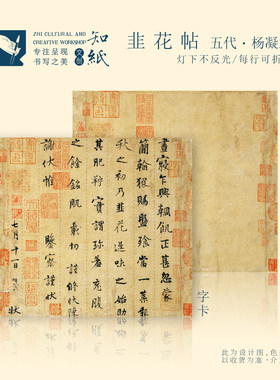 ZHI CULTURAL AND
CREATIVE WORKSHOP
专注呈现
书写之美
文创
知紙
韭花帖 五代·杨凝
灯下不反光/每行可折
晝寢乍興輖飢正甚忽蒙
簡翰猥賜盤飱當一葉報
秋之初乃韭花逞味之始助
其肥羜實謂珍羞充腹
之餘銘肌載切謹修狀陳
謝伏惟 鑒察謹狀
七月十一日 狀
字卡
此为设计图,色
以收货为准·介